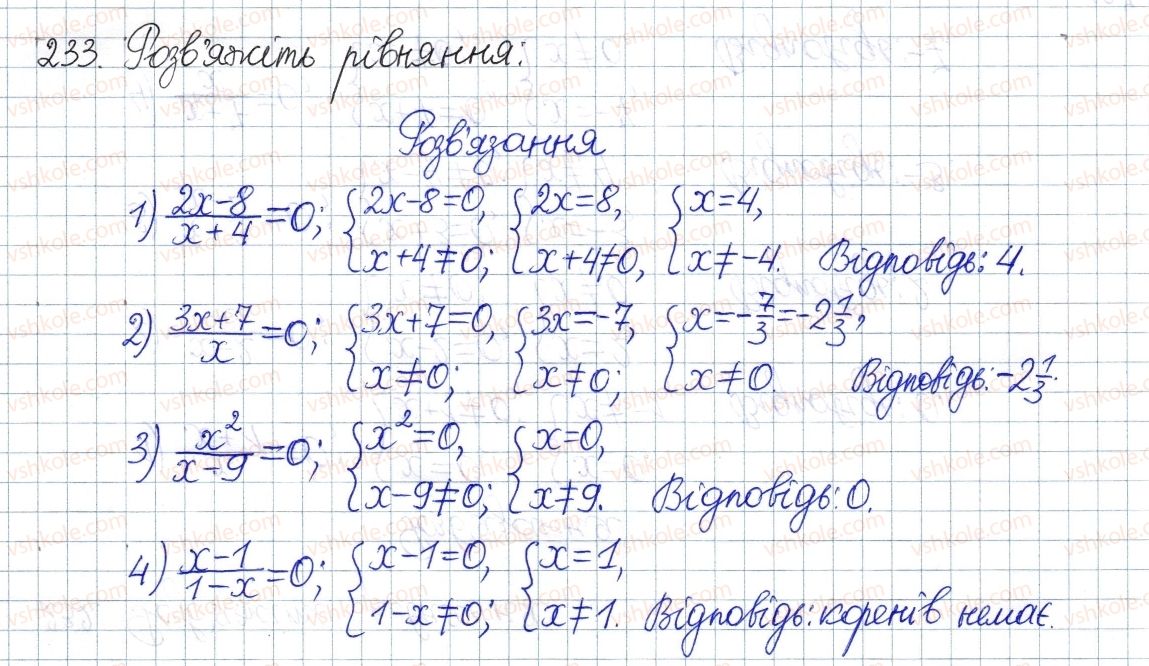 233. Розв'яжіть рівняння:
Розв'язання
1) (2x-8)/(x+4)=0; {2x-8=0, x+4≠0; {2x=8, x+4≠0, {x=4, x≠-4. Відповідь: 4.
2) (3x+7)/x=0; {3x+7=0, x≠0; {3x=-7, x≠0; {x=-7/3=-2 1/3, x≠0. Відповідь: -2 1/3.
3) x²/(x-9)=0; {x²=0, x-9≠0; {x=0, x≠9. Відповідь: 0.
4) (x-1)/(1-x)=0; {x-1=0, 1-x≠0; {x=1, x≠1. Відповідь: коренів немає.